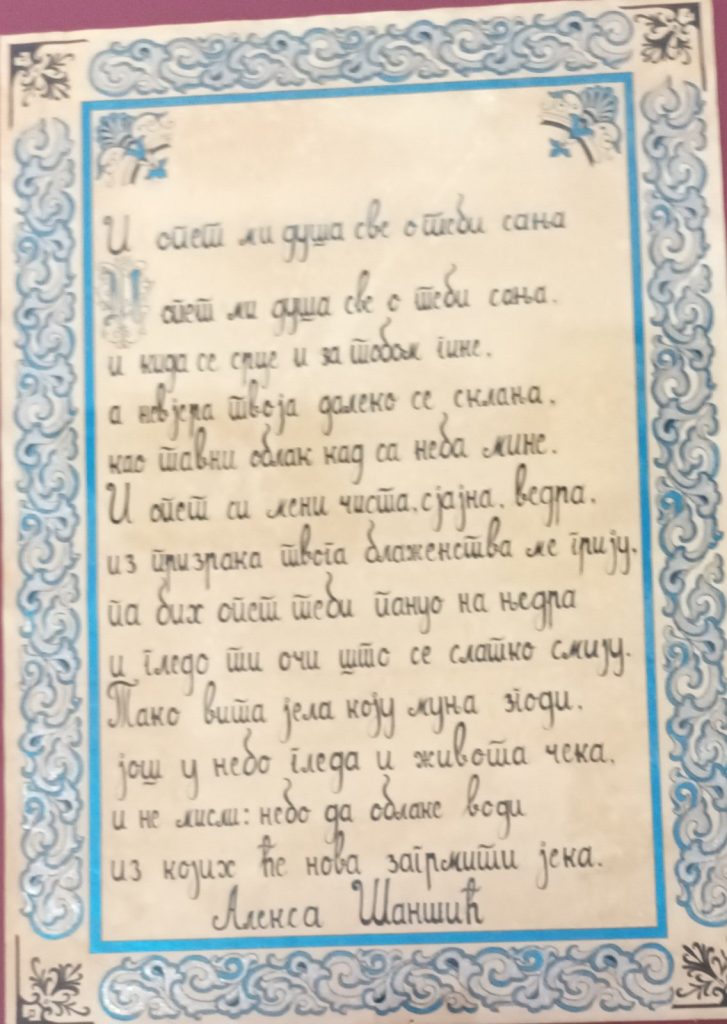 И опет ми душа све о теби сања
И опет ми душа све о теби сања,
и кида се срце и за тобом гине,
а невјера твоја далеко се склања,
као тавни облак кад са неба мине.
И опет си мени чиста, сјајна, ведра,
из призрака твога блаженства ме грију,
па бих опет теби пануо на њедра
и гледо ти очи што се слатко смију.
Тако вита јела коју муња згоди,
још у небо гледа и живота чека,
и не мисли: небо да облаке води
из којих ће нова загрмити јека.
Алекса Шаншић